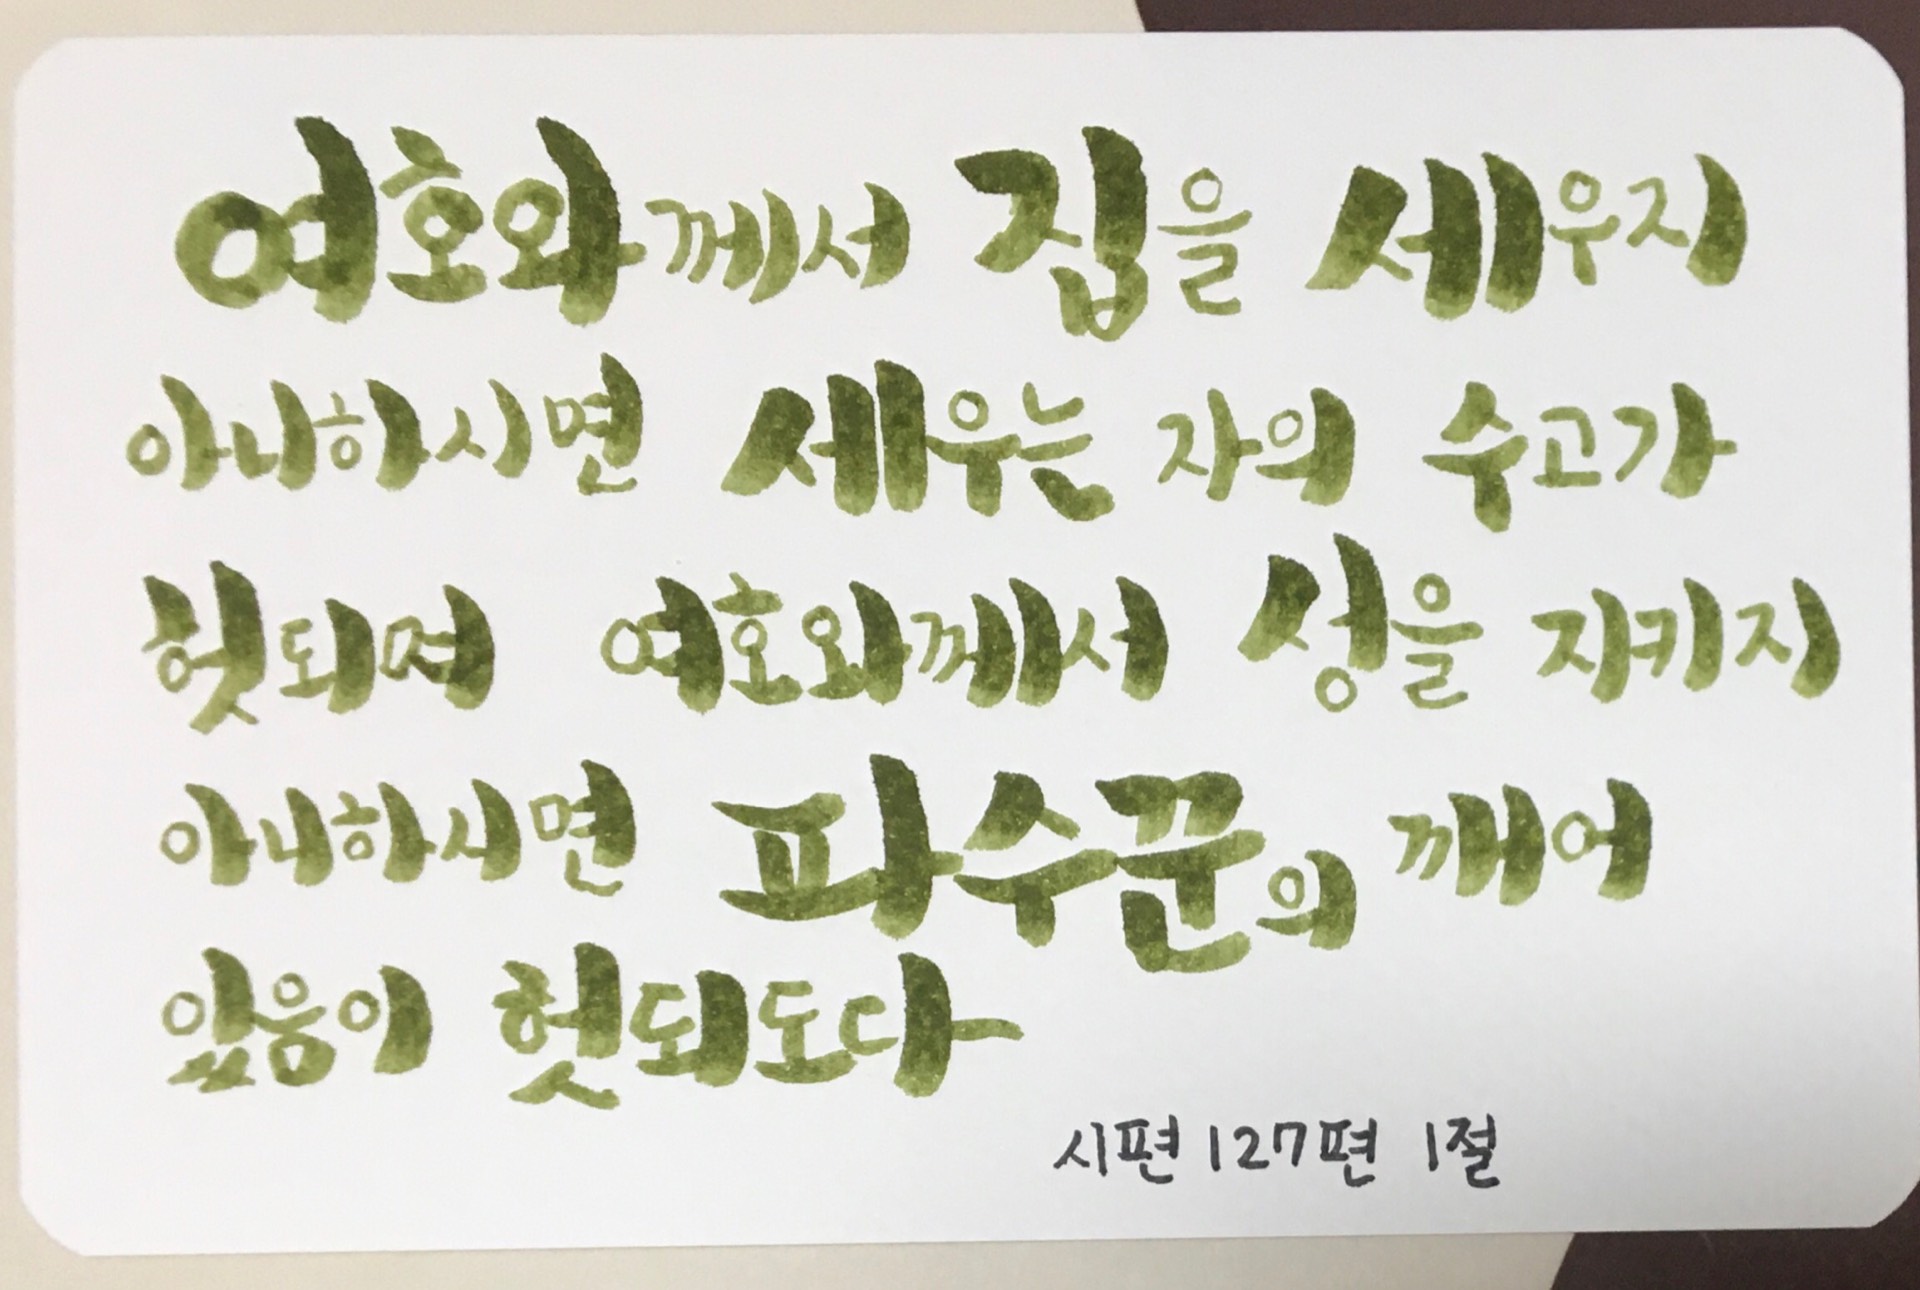 여호와께서 집을 세우지
아니하시면 세우는 자의 수고가
헛되며 여호와께서 성을 지키지
아니하시면 파수꾼의 깨어
있음이 헛되도다
시편 127편 1절